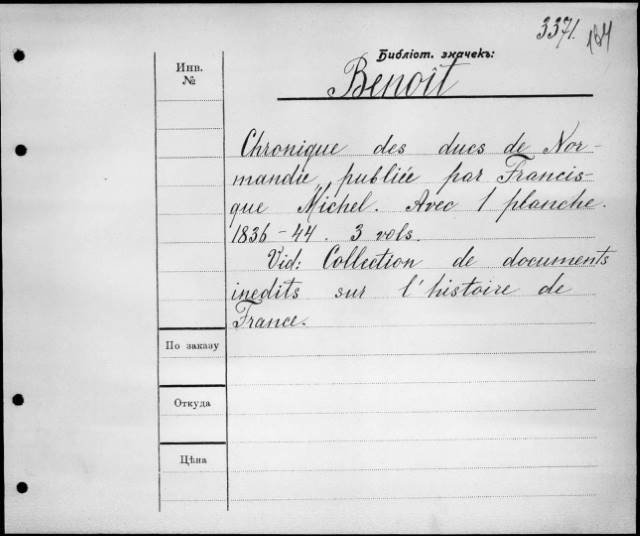 3371. 184
Библіот. значекъ:
Инв.
№
Benoît
Chronique des ducs de Nor-
mandie, publiée par Francis-
que Michel. Avec 1 planche.
1836-44. 3 vols.
Vid: Collection de documents
inedits sur l'histoire de
France.
По заказу
Откуда
Цѣна